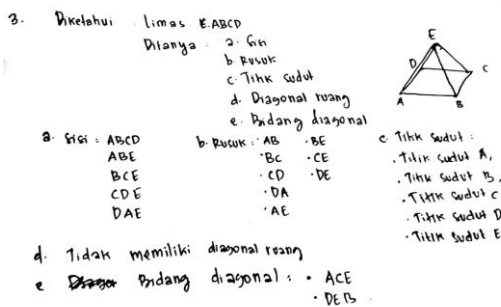 3. Diketahui Limas E.ABCD
Ditanya : a. Sisi
b. Rusuk
c. Titik sudut
d. Diagonal ruang
e. Bidang diagonal
E
D
C
A
B
a. Sisi : ABCD
ABE
BCE
CDE
DAE
b. Rusuk : · AB · BE
· BC · CE
· CD · DE
· DA
· AE
c. Titik sudut :
· Titik sudut A,
· Titik sudut B,
· Titik sudut C
· Titik sudut D
· Titik sudut E
d. Tidak memiliki diagonal ruang
e Bidang diagonal : · ACE
· DEB